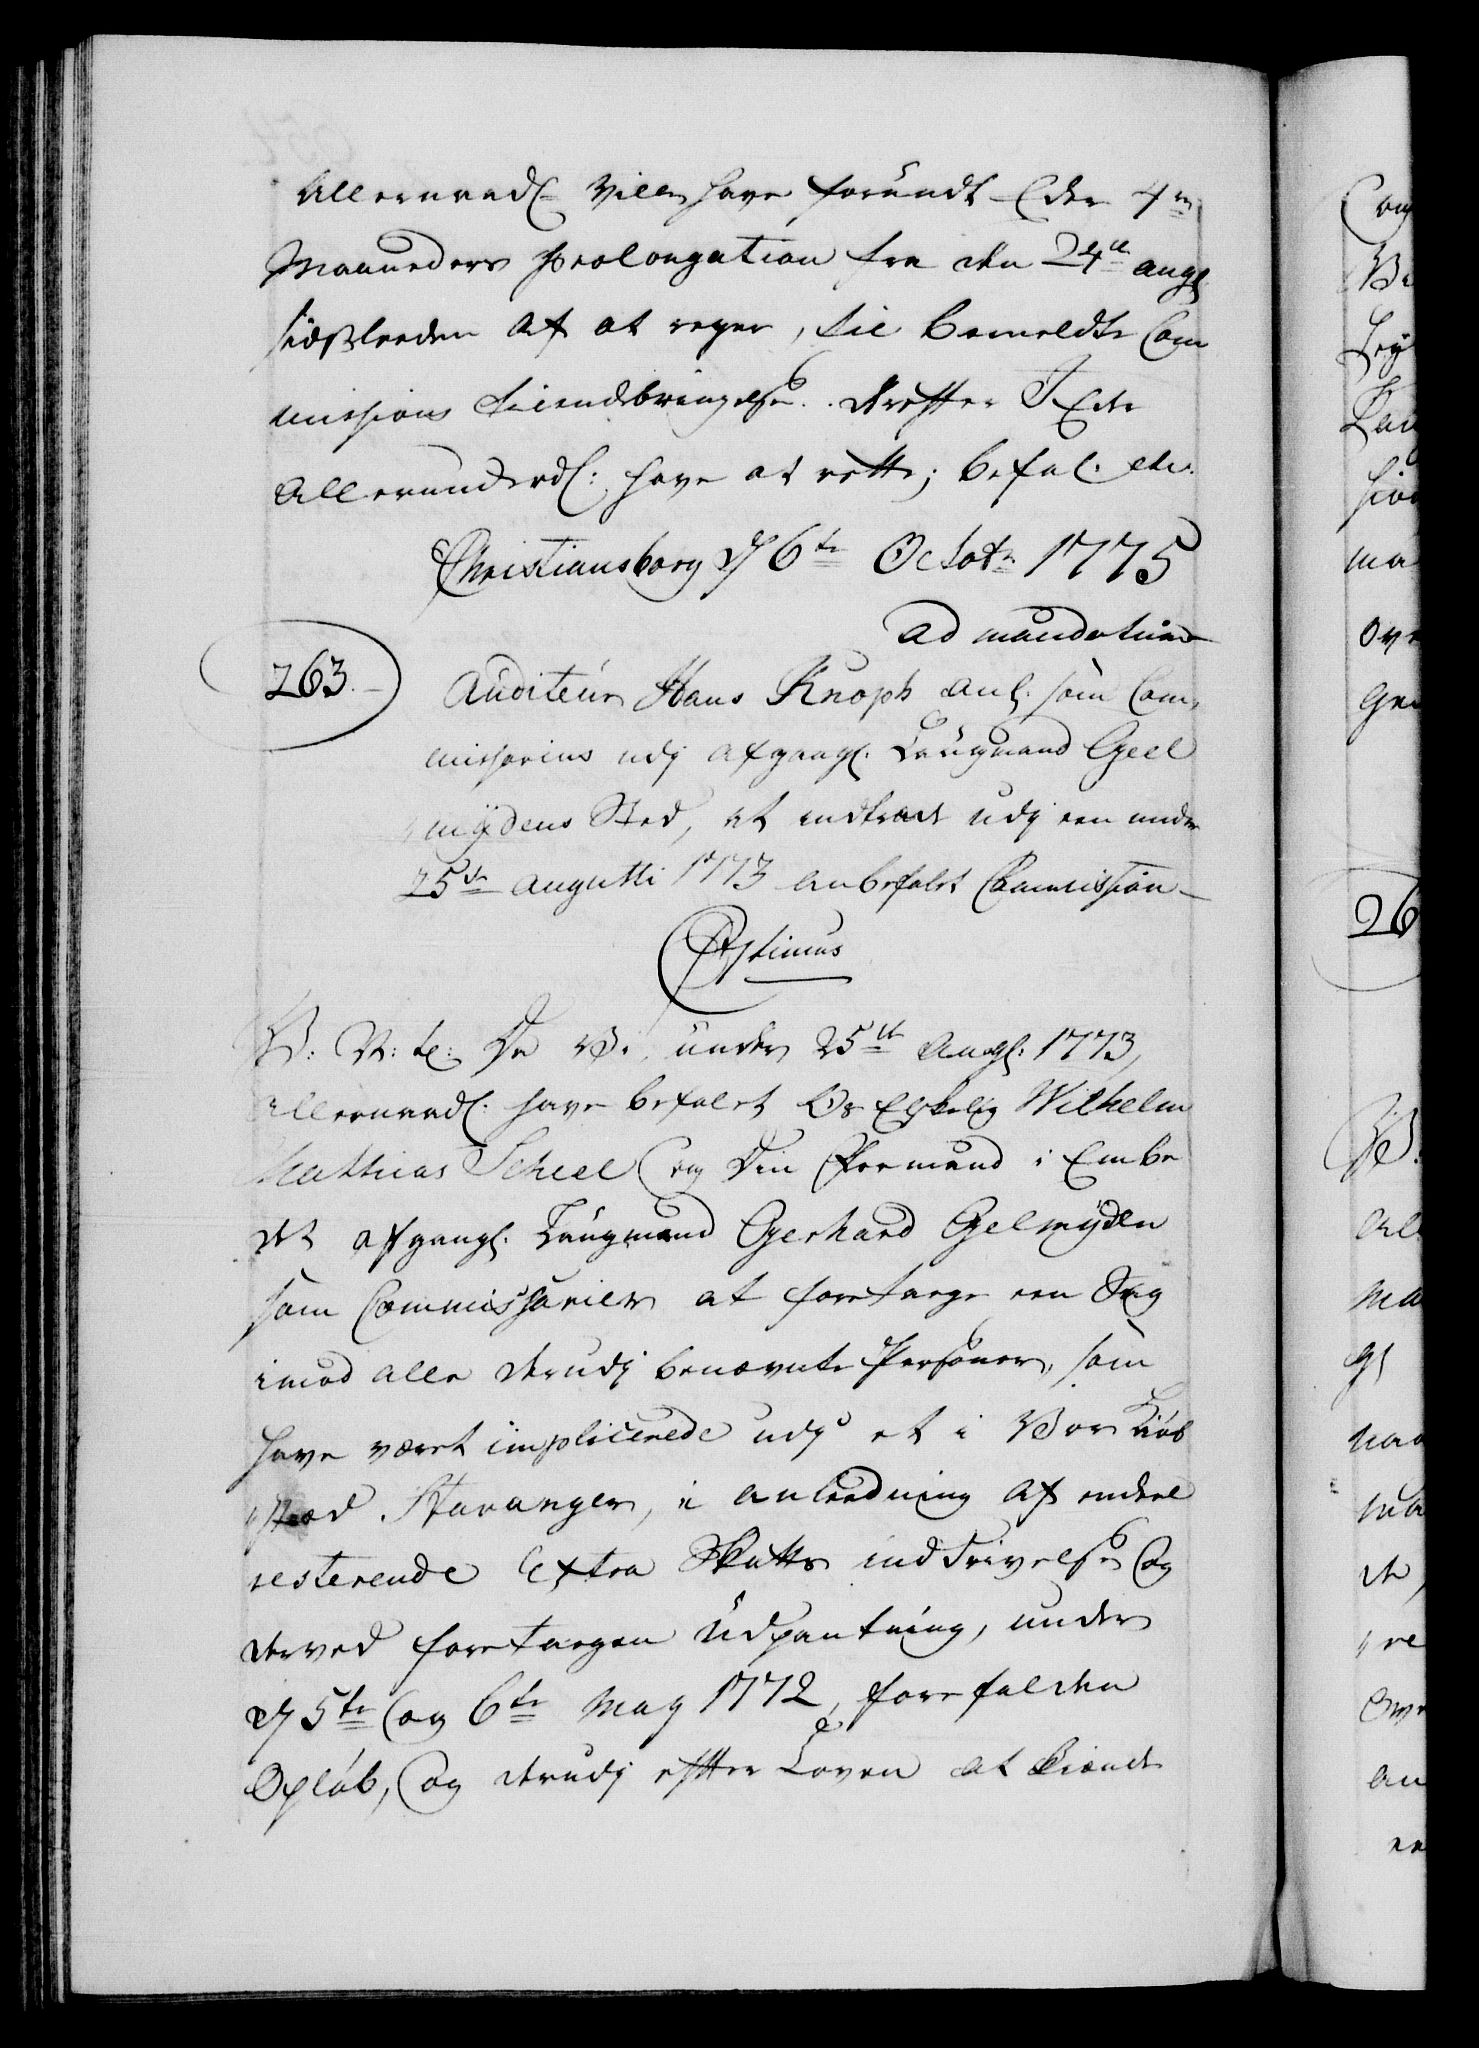 Allernaadl. Ville have forundt Eder 4re
Maaneders prolongation fra den 24de augl.
sidstleeden af at regne, til bemeldte Com
missions tilendebringelse. Derefter I Eder
Allerunderdl: have at rette; befal. etc.
Christiansborg d 6te Octobr 1775
ad mandatum
263. Auditeur Hans Knoph anl. som Com-
missarius udj afgangl. Laugmand Geel
myÿdens Sted, at indtræde udj een under
25de augusti 1773 anbefalet Commission
Christianus
V: V: t: Da Vi, under 25de Augl: 1773,
allernaadl. have befalet Os Elskelig Wilhelm
Mathias Scheel og Din Formand i Embe
det afgangl. Laugmand Gerhard Gelmyden
som Commissarier at foretage een Sag
imod alle derudj benævnte Personer, som
have været implicerede udj et i Vor Kiøb
stæd Stavanger, i anledning af endeel
resterende Extra Skatts inddrivelse og
derved foretagen Udpantning, under
d 5te og 6te May 1772, forefalden
Opløb, og derudj efter Loven at kiende